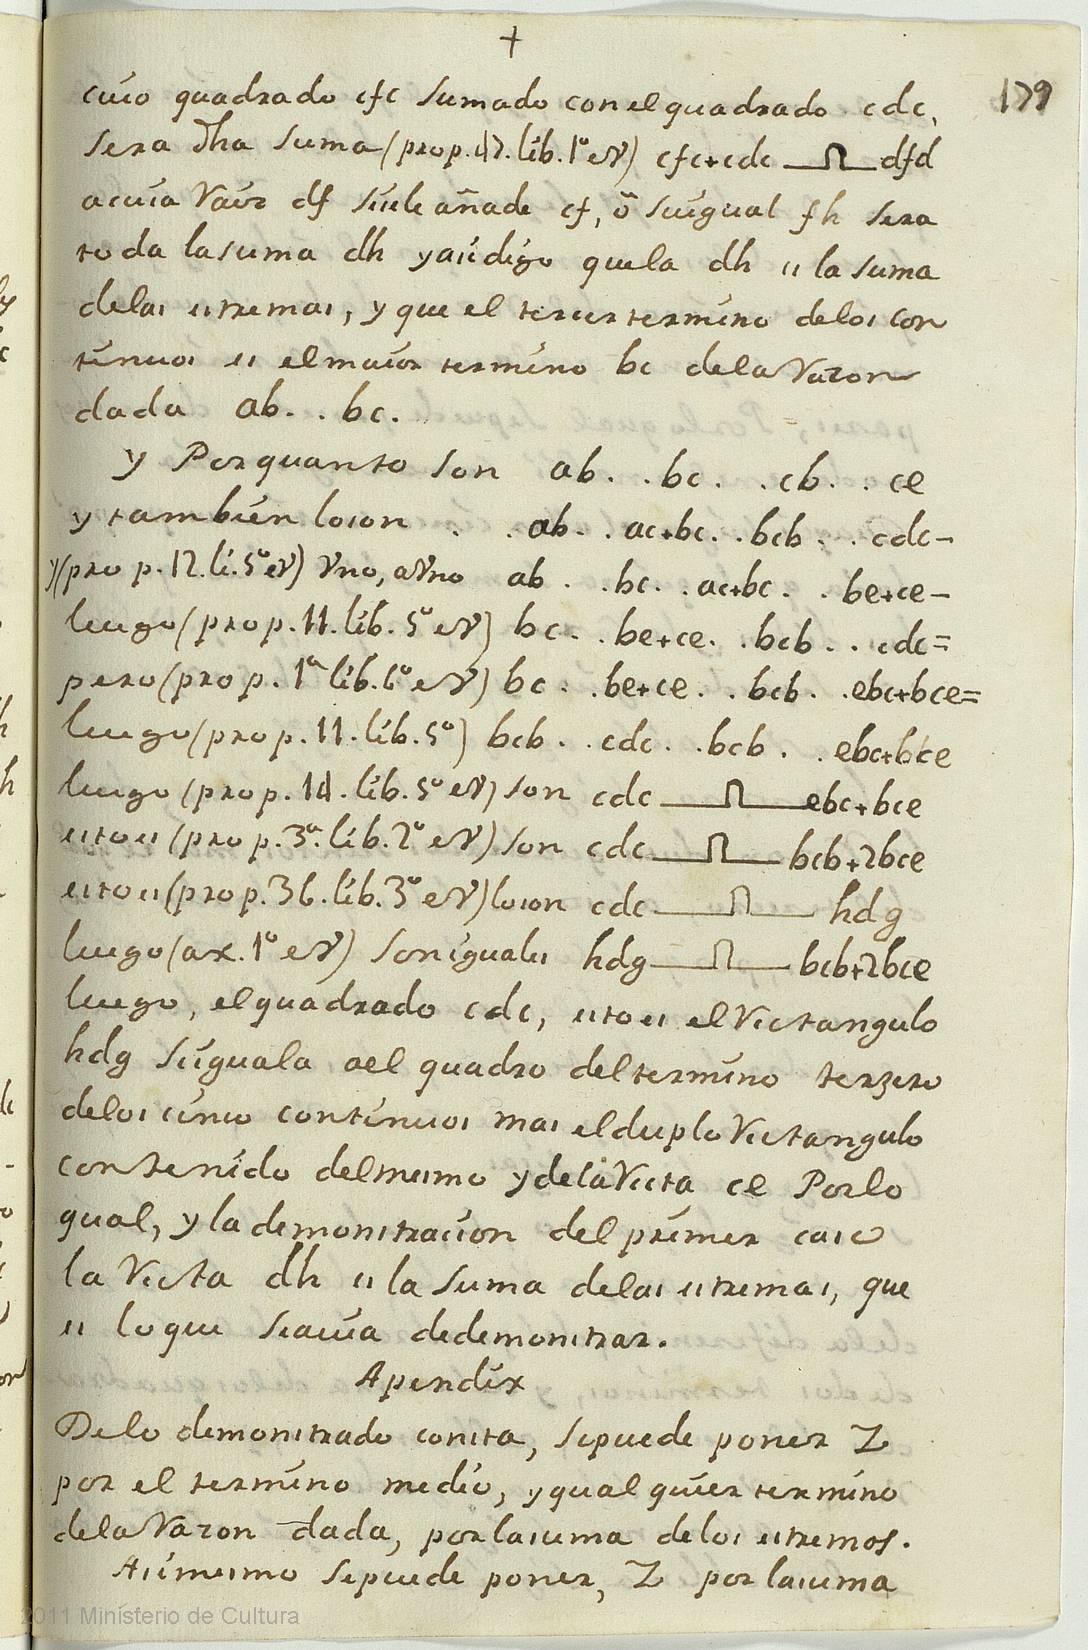 +
179
cuio quadrado cfc sumado con el quadrado cdc,
sera dha suma (prop. 47. lib. 1º er) cfc+cdc ⟏ dfd
a cuia raiz df siesele añade cf, ō suigual fh sera
toda lasuma dh y asi digo quela dh es la suma
delas estremas, y que el tercer termino delos con
tinuos es el maior termino bc dela razon
dada ab. . bc.
y Porquanto son ab. . bc. . cb. . ce
y tambien loson . . ab. . ac+bc. . bcb. . cdc-
y (prop. 12. li. 5º er) vno, a vno ab . . bc. . ac+bc. . be+ce-
luego (prop. 11. lib. 5º er) bc. . be+ce. . bcb. . cdc=
pero (prop. 1ª lib. 6º er) bc. . be+ce. . bcb. . ebc+bce=
luego (prop. 11. lib. 5º) bcb. . cdc. . bcb. . ebc+bce
luego (prop. 14. lib. 5º er) son cdc ⟏ ebc+bce
esto es (prop. 3ª. lib. 2º er) son cdc ⟏ bcb+2bce
esto es (prop. 36. lib. 3º er) loson cdc ⟏ hdg
luego (ax. 1º er) son iguales hdg ⟏ bcb+2bce
luego, el quadrado cdc, esto es el rectangulo
hdg suiguala ael quadro del termino terzero
delos cinco continuos mas el duplo rectangulo
contenido del mesmo y dela recta ce Porlo
qual, y la demonstracion del primer caso
la recta dh es la suma delas estremas, que
es lo que seavia dedemonstrar.
Apendix
Delo demonstrado consta, sepuede poner Z
por el termino medio, y qualquier termino
dela razon dada, por lasuma delos estremos.
Asimesmo sepuede poner, Z por lasuma
2011 Ministerio de Cultura